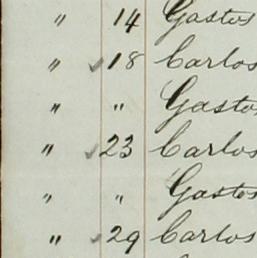 " 14 Gastos
" 18 Carlos
" " Gastos
" 23 Carlos
" " Gastos
" 29 Carlos